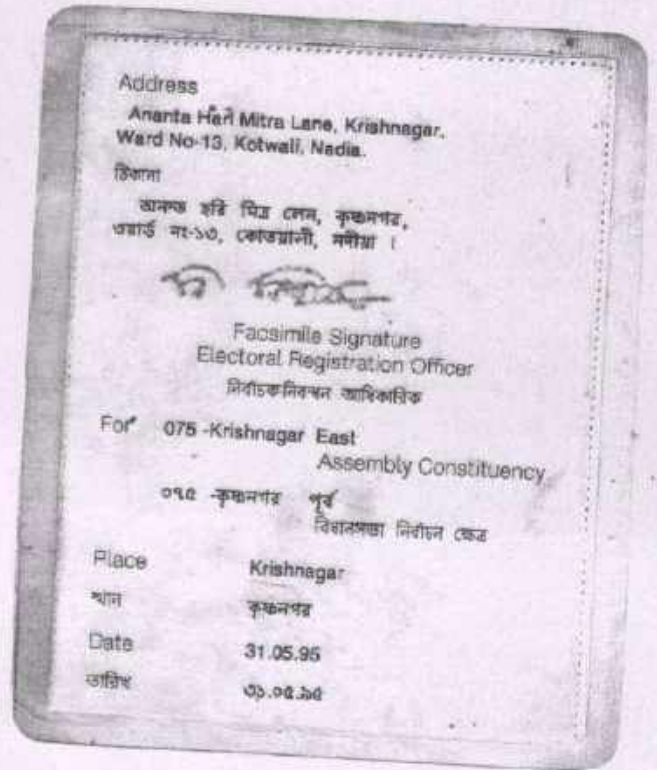 Address
Ananta Hari Mitra Lane, Krishnagar,
Ward No-13, Kotwali, Nadia.
ঠিকানা
অনন্ত হরি মিত্র লেন, কৃষ্ণনগর,
ওয়ার্ড নং-১৩, কোতয়ালী, নদীয়া ।
Facsimile Signature
Electoral Registration Officer
নির্বাচক নিবন্ধন আধিকারিক
For 075 -Krishnagar East
Assembly Constituency
০৭৫ -কৃষ্ণনগর পূর্ব
বিধানসভা নির্বাচন ক্ষেত্র
Place Krishnagar
স্থান কৃষ্ণনগর
Date 31.05.95
তারিখ ৩১.০৫.৯৫